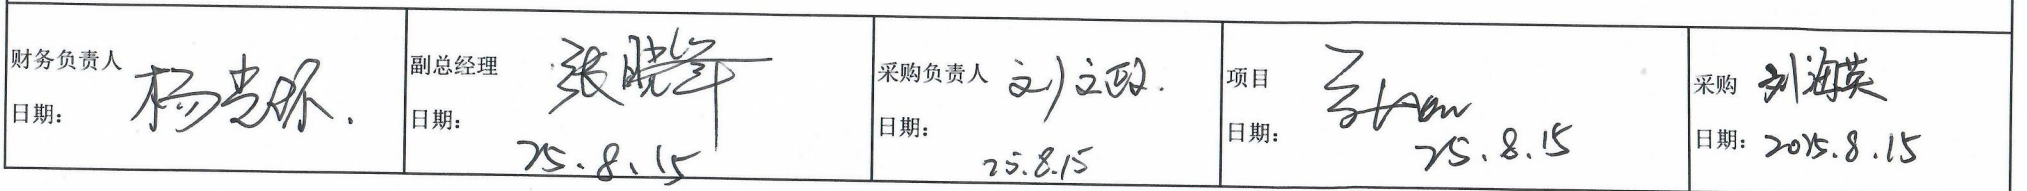 财务负责人
日期：
副总经理 张晓军
日期： 25.8.15
采购负责人 刘文政.
日期： 25.8.15
项目
日期： 25.8.15
采购 刘海英
日期： 2025.8.15